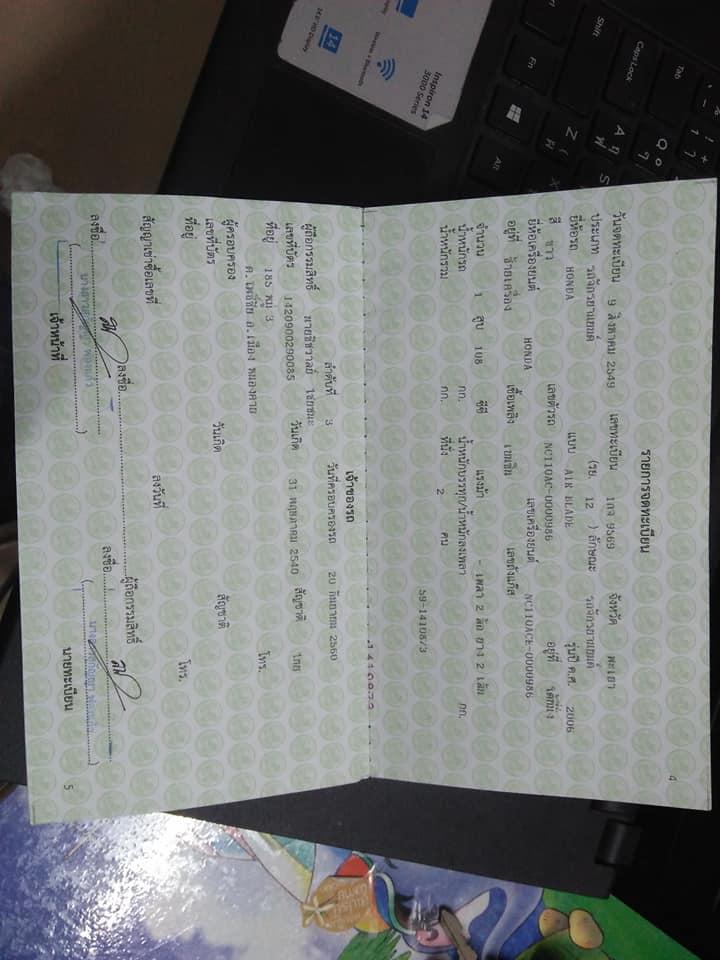 4
รายการจดทะเบียน
วันจดทะเบียน 9 สิงหาคม 2549 เลขทะเบียน 1กจ 9569 จังหวัด พะเยา
ประเภท รถจักรยานยนต์ (รย. 12 ) ลักษณะ รถจักรยานยนต์
ยี่ห้อรถ HONDA แบบ AIR BLADE รุ่นปี ค.ศ. 2006
สี ขาว เลขตัวรถ NC110AC-0000986 อยู่ที่
ยี่ห้อเครื่องยนต์ HONDA เลขเครื่องยนต์ NC110ACE-0000986
อยู่ที่ ข้างเครื่อง เชื้อเพลิง เบนซิน เลขถังแก๊ส
จำนวน 1 สูบ 108 ซีซี แรงม้า - เพลา 2 ล้อ ยาง 2 เส้น
น้ำหนักรถ กก. น้ำหนักบรรทุก/น้ำหนักลงเพลา กก.
น้ำหนักรวม กก. ที่นั่ง 2 คน
59-1410873
เจ้าของรถ
ลำดับที่ 3 วันที่ครอบครองรถ 20 กันยายน 2560
ผู้ถือกรรมสิทธิ์ ไชยชนะ
เลขที่บัตร 1420900290085 วันเกิด 31 พฤษภาคม 2540 สัญชาติ ไทย
ที่อยู่ 185 หมู่ 3 โทร.
ต. โพธิ์ชัย อ.เมือง หนองคาย
ผู้ครอบครอง
เลขที่บัตร วันเกิด สัญชาติ
ที่อยู่ โทร.
สัญญาเช่าซื้อเลขที่ ลงวันที่
ลงชื่อ ผู้ถือกรรมสิทธิ์
ลงชื่อ ลงชื่อ
เจ้าหน้าที่ นายทะเบียน
5
Inspiron 14
3000 Series
Wireless + Bluetooth
14
14.0" HD Display
Tab
Caps Lock
Shift
Fn
Alt
Q
A
Z
S